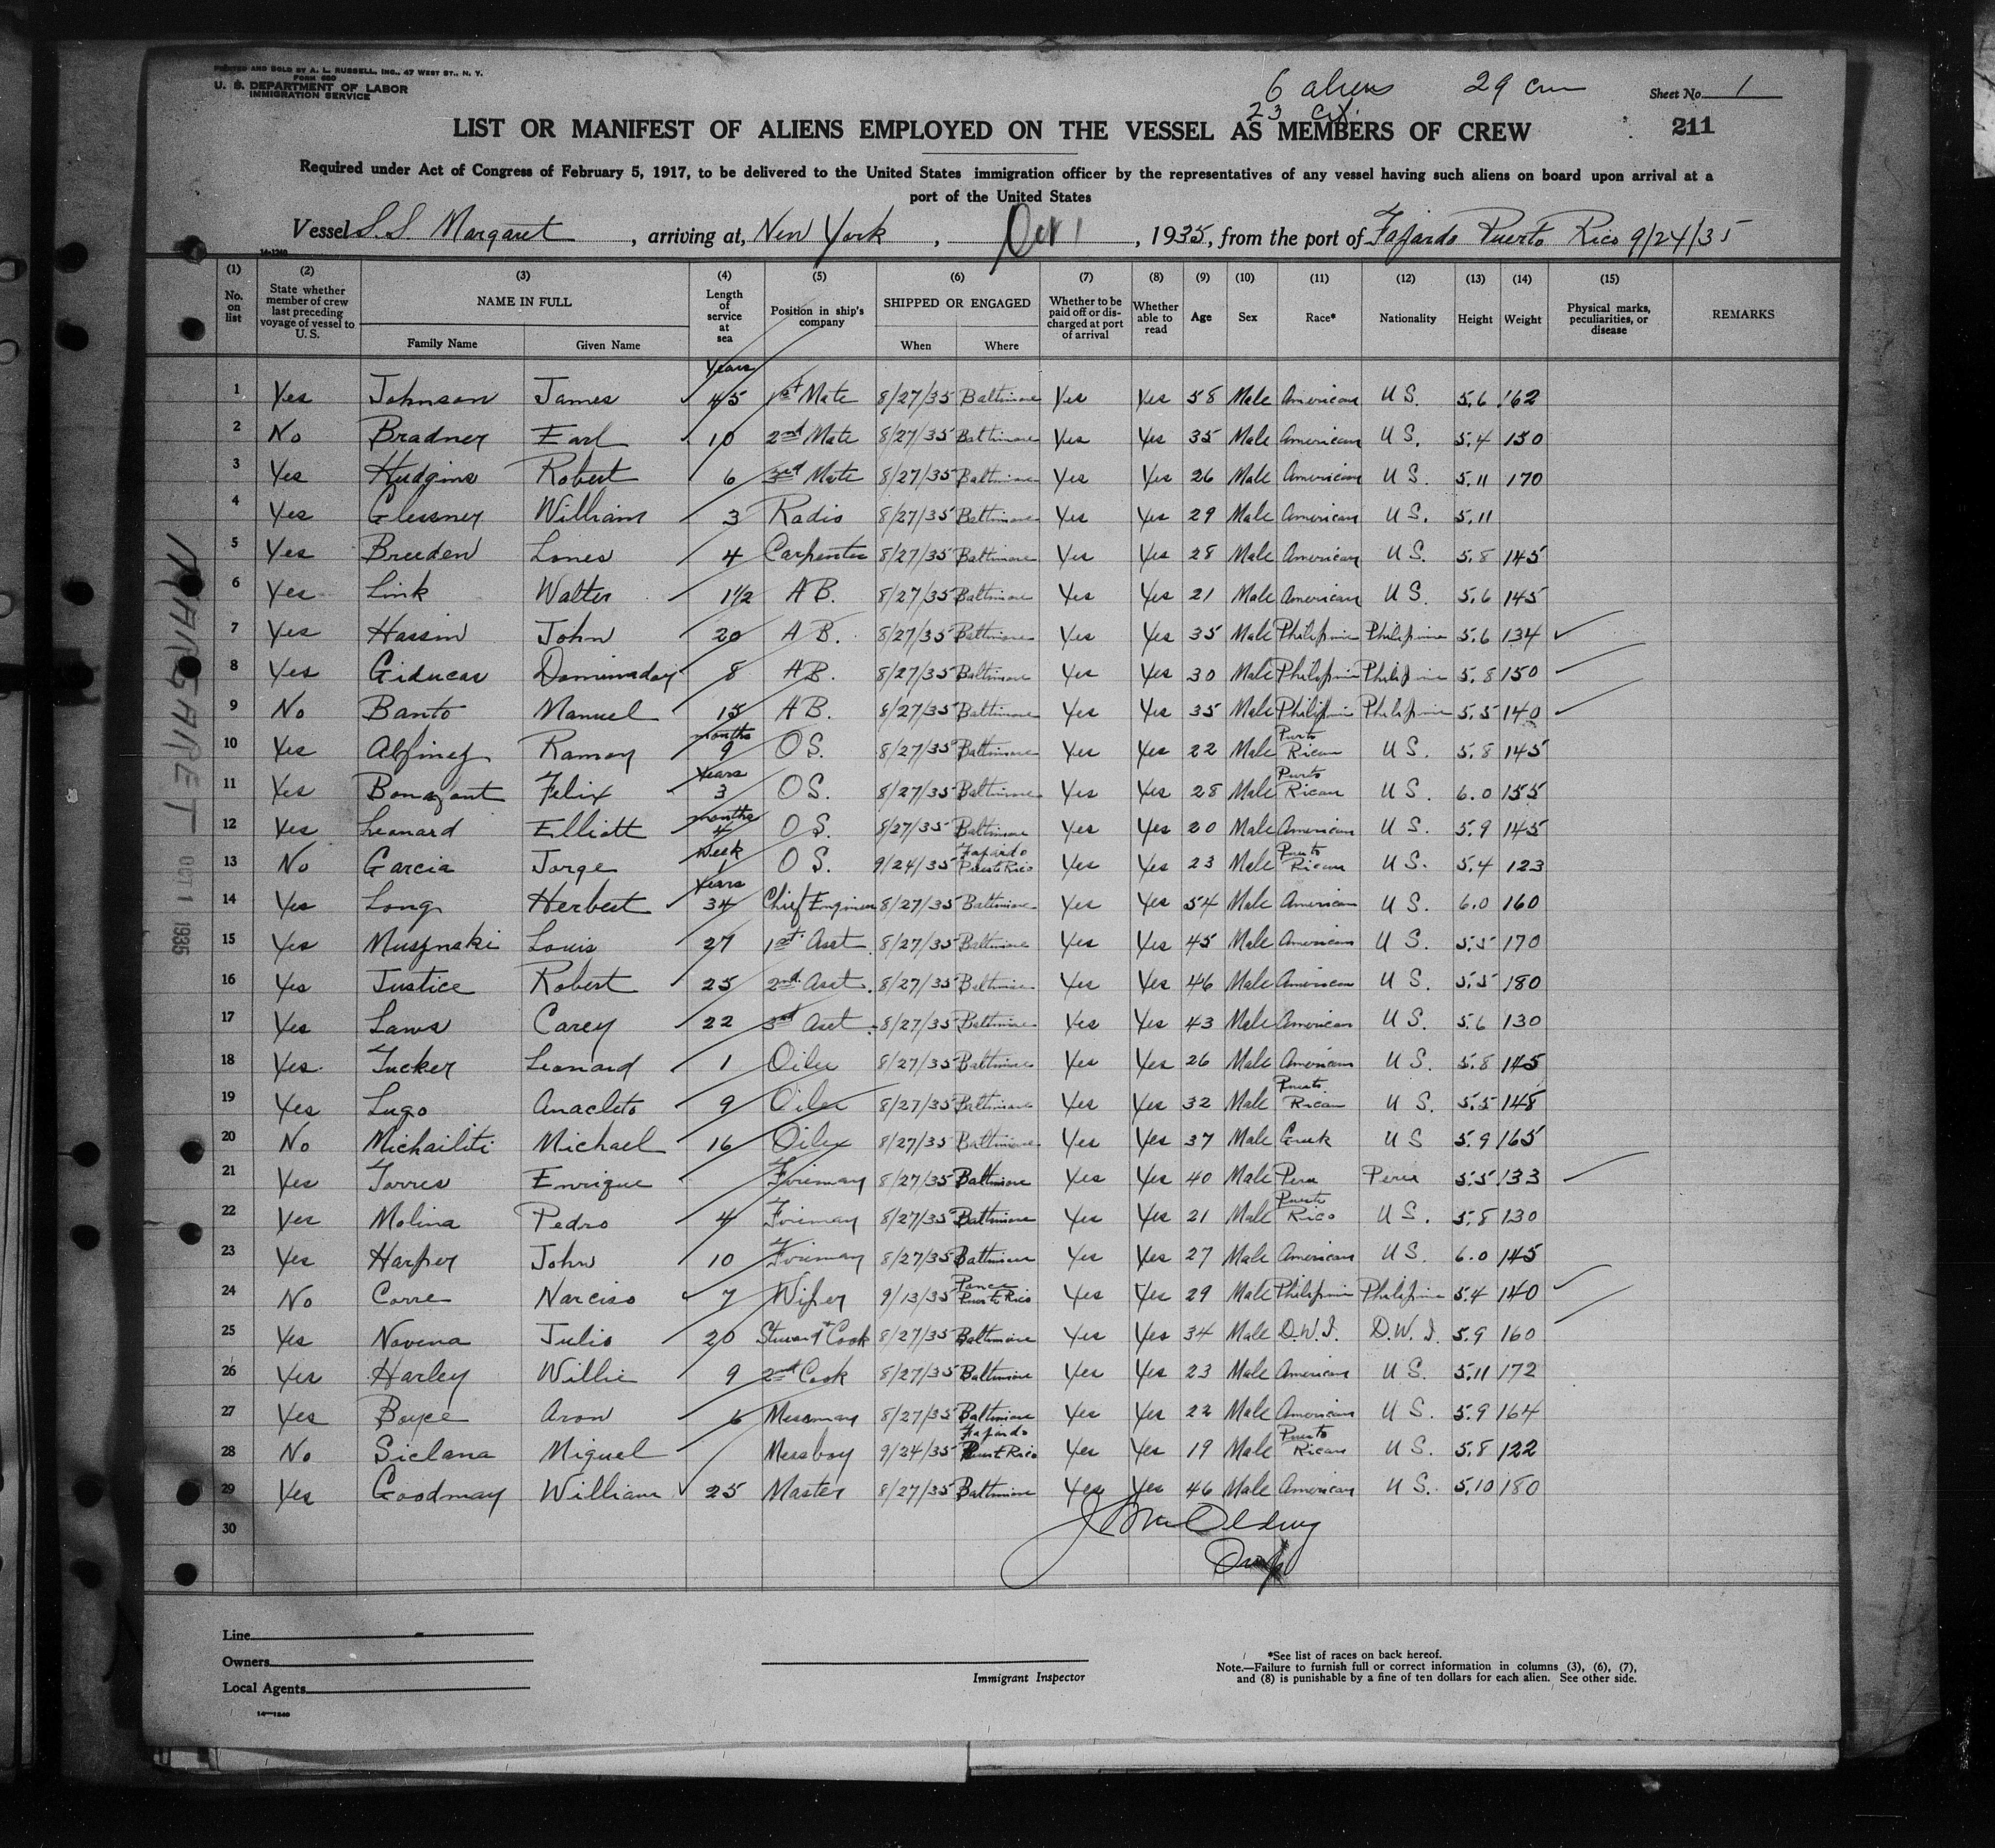 PRINTED AND SOLD BY A. L. RUSSELL, INC., 47 WEST ST., N. Y.
FORM 680
U. S. DEPARTMENT OF LABOR
IMMIGRATION SERVICE
6 aliens 29 crew
23 cit.
Sheet No. 1
211
LIST OR MANIFEST OF ALIENS EMPLOYED ON THE VESSEL AS MEMBERS OF CREW
Required under Act of Congress of February 5, 1917, to be delivered to the United States immigration officer by the representatives of any vessel having such aliens on board upon arrival at a
port of the United States
Vessel S.S. Margaret, arriving at, New York, Oct 1, 1935, from the port of Fajardo Puerto Rico 9/24/35
14-1240
(1) No. on list
(2) State whether member of crew last preceding voyage of vessel to U. S.
(3) NAME IN FULL Family Name Given Name
(4) Length of service at sea
(5) Position in ship's company
(6) SHIPPED OR ENGAGED When Where
(7) Whether to be paid off or discharged at port of arrival
(8) Whether able to read
(9) Age
(10) Sex
(11) Race*
(12) Nationality
(13) Height
(14) Weight
(15) Physical marks, peculiarities, or disease
REMARKS
Years
1 Yes Johnson James 45 1st Mate 8/27/35 Baltimore Yes Yes 58 Male American U S. 5.6 162
2 No Bradner Earl 10 2nd Mate 8/27/35 Baltimore Yes Yes 35 Male American U S. 5.4 150
3 Yes Hudgins Robert 6 3rd Mate 8/27/35 Baltimore Yes Yes 26 Male American U S. 5.11 170
4 Yes Glessner William 3 Radio 8/27/35 Baltimore Yes Yes 29 Male American U S. 5.11
5 Yes Breeden Lones 4 Carpenter 8/27/35 Baltimore Yes Yes 28 Male American U S. 5.8 145
6 Yes Link Walter 1 1/2 A B. 8/27/35 Baltimore Yes Yes 21 Male American U S. 5.6 145
7 Yes Hassin John 20 A B. 8/27/35 Baltimore Yes Yes 35 Male Philipine Philipine 5.6 134
8 Yes Giducas 8 A B. 8/27/35 Baltimore Yes Yes 30 Male Philipine Philipine 5.8 150
9 No Banto Manuel 15 A B. 8/27/35 Baltimore Yes Yes 35 Male Philipine Philipine 5.5 140
10 Yes Alfinez Ramon months 9 O S. 8/27/35 Baltimore Yes Yes 22 Male Purto Rican U S. 5.8 145
11 Yes Bonazant Felix Years 3 O S. 8/27/35 Baltimore Yes Yes 28 Male Purto Rican U S. 6.0 155
12 Yes Leonard Elliott months 4 O S. 8/27/35 Baltimore Yes Yes 20 Male American U S. 5.9 145
13 No Garcia Jorge Week 1 O S. 9/24/35 Fajardo Puerto Rico Yes Yes 23 Male Puerto Rican U S. 5.4 123
14 Yes Long Herbert Years 34 Chief Engineer 8/27/35 Baltimore Yes Yes 54 Male American U S. 6.0 160
15 Yes Musznski Louis 27 1st Asst. 8/27/35 Baltimore Yes Yes 45 Male American U S. 5.5 170
16 Yes Justice Robert 25 2nd Asst. 8/27/35 Baltimore Yes Yes 46 Male American U S. 5.5 180
17 Yes Laws Carey 22 3rd Asst. 8/27/35 Baltimore Yes Yes 43 Male American U S. 5.6 130
18 Yes Tucker Leonard 1 Oiler 8/27/35 Baltimore Yes Yes 26 Male American U S. 5.8 145
19 Yes Lugo Anacleto 9 Oiler 8/27/35 Baltimore Yes Yes 32 Male Puerto Rican U S. 5.5 148
20 No Michailiti Michael 16 Oiler 8/27/35 Baltimore Yes Yes 37 Male Greek U S 5.9 165
21 Yes Torres Enrique Fireman 8/27/35 Baltimore Yes Yes 40 Male Peru Peru 5.5 133
22 Yes Molina Pedro 4 Fireman 8/27/35 Baltimore Yes Yes 21 Male Puerto Rico U S. 5.8 130
23 Yes Harper John 10 Fireman 8/27/35 Baltimore Yes Yes 27 Male American U S. 6.0 145
24 No Corre Narciso 7 Wiper 9/13/35 Ponce Puerto Rico Yes Yes 29 Male Philipine Philipine 5.4 140
25 Yes Novena Julio 20 Steward Cook 8/27/35 Baltimore Yes Yes 34 Male D.W.I. D.W.I. 5.9 160
26 Yes Harley Willie 9 2nd Cook 8/27/35 Baltimore Yes Yes 23 Male American U S. 5.11 172
27 Yes Boyce Aron 6 Messman 8/27/35 Baltimore Yes Yes 22 Male American U S. 5.9 164
28 No Siclana Miguel Messboy 9/24/35 Fajardo Puerto Rico Yes Yes 19 Male Puerto Rican U S. 5.8 122
29 Yes Goodman William 25 Master 8/27/35 Baltimore Yes Yes 46 Male American U S. 5.10 180
30
MARGARET OCT 1 1935
Line
Owners
Local Agents
14-1240
Immigrant Inspector
*See list of races on back hereof.
Note.—Failure to furnish full or correct information in columns (3), (6), (7),
and (8) is punishable by a fine of ten dollars for each alien. See other side.